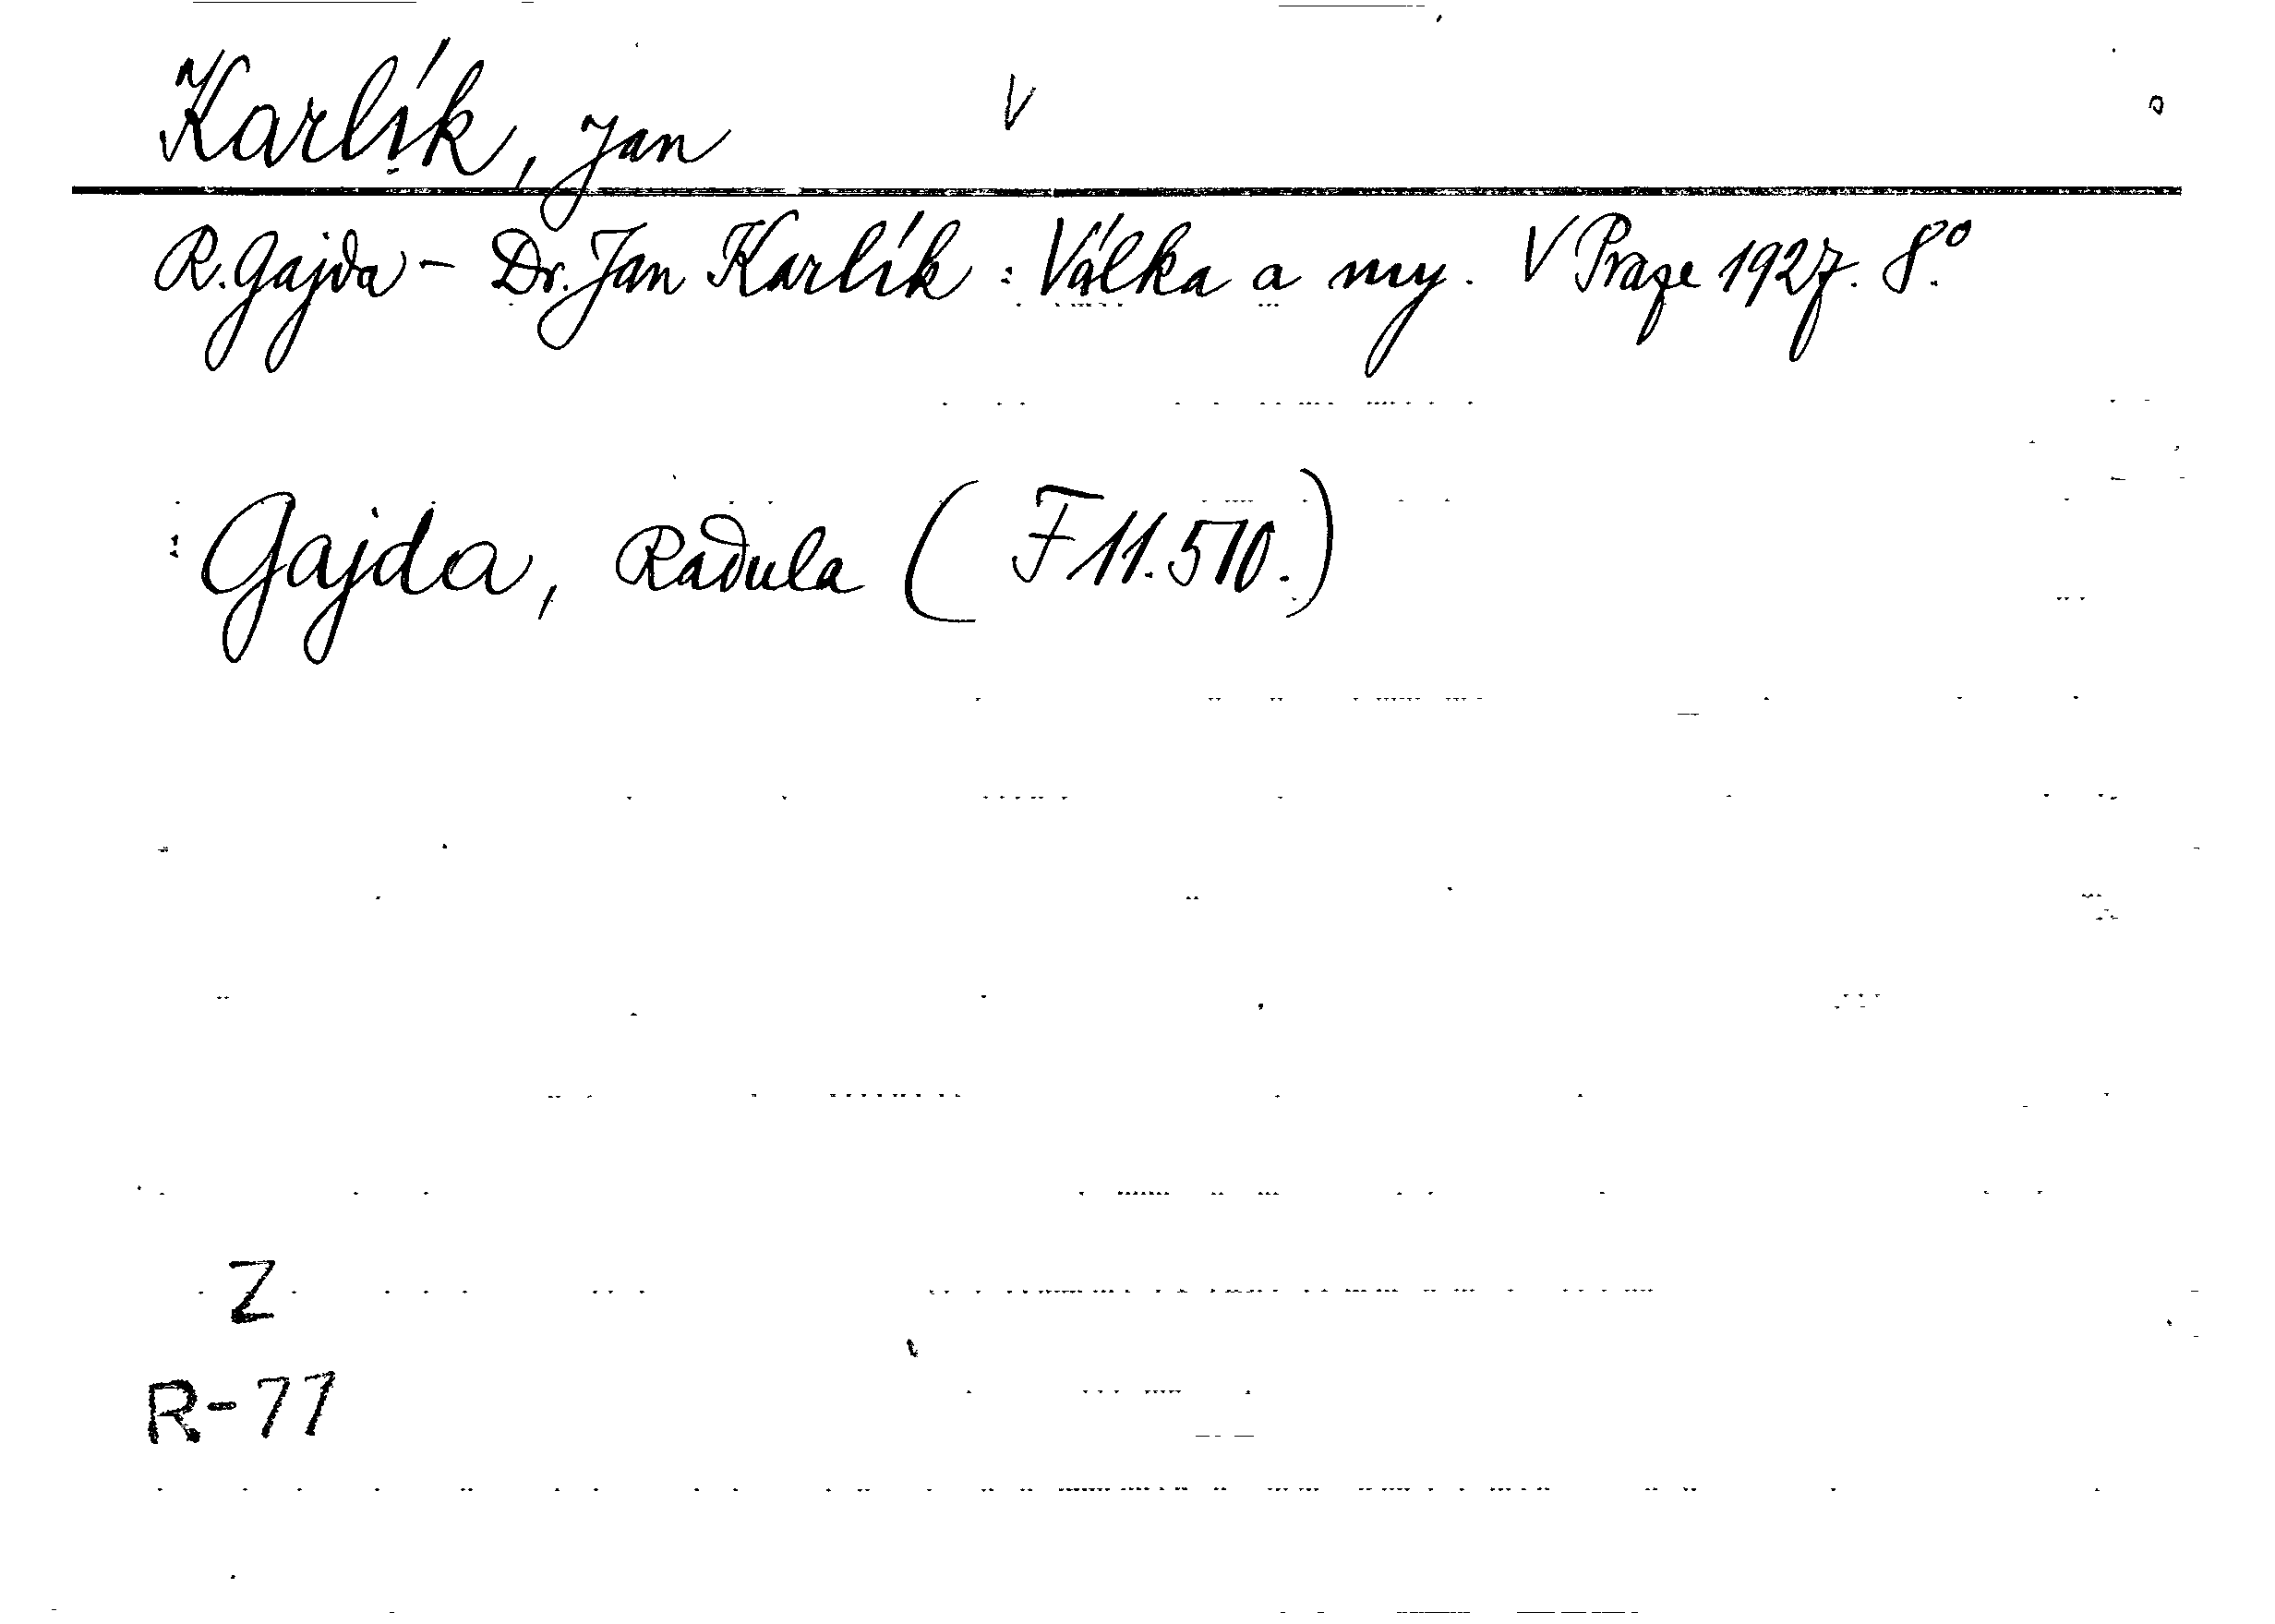 Karlík, Jan V
R. Gajda - Dr. Jan Karlík : Válka a my. V Praze 1927. 8.º
: Gajda, Radula ( F 11.510.)
Z
R-77